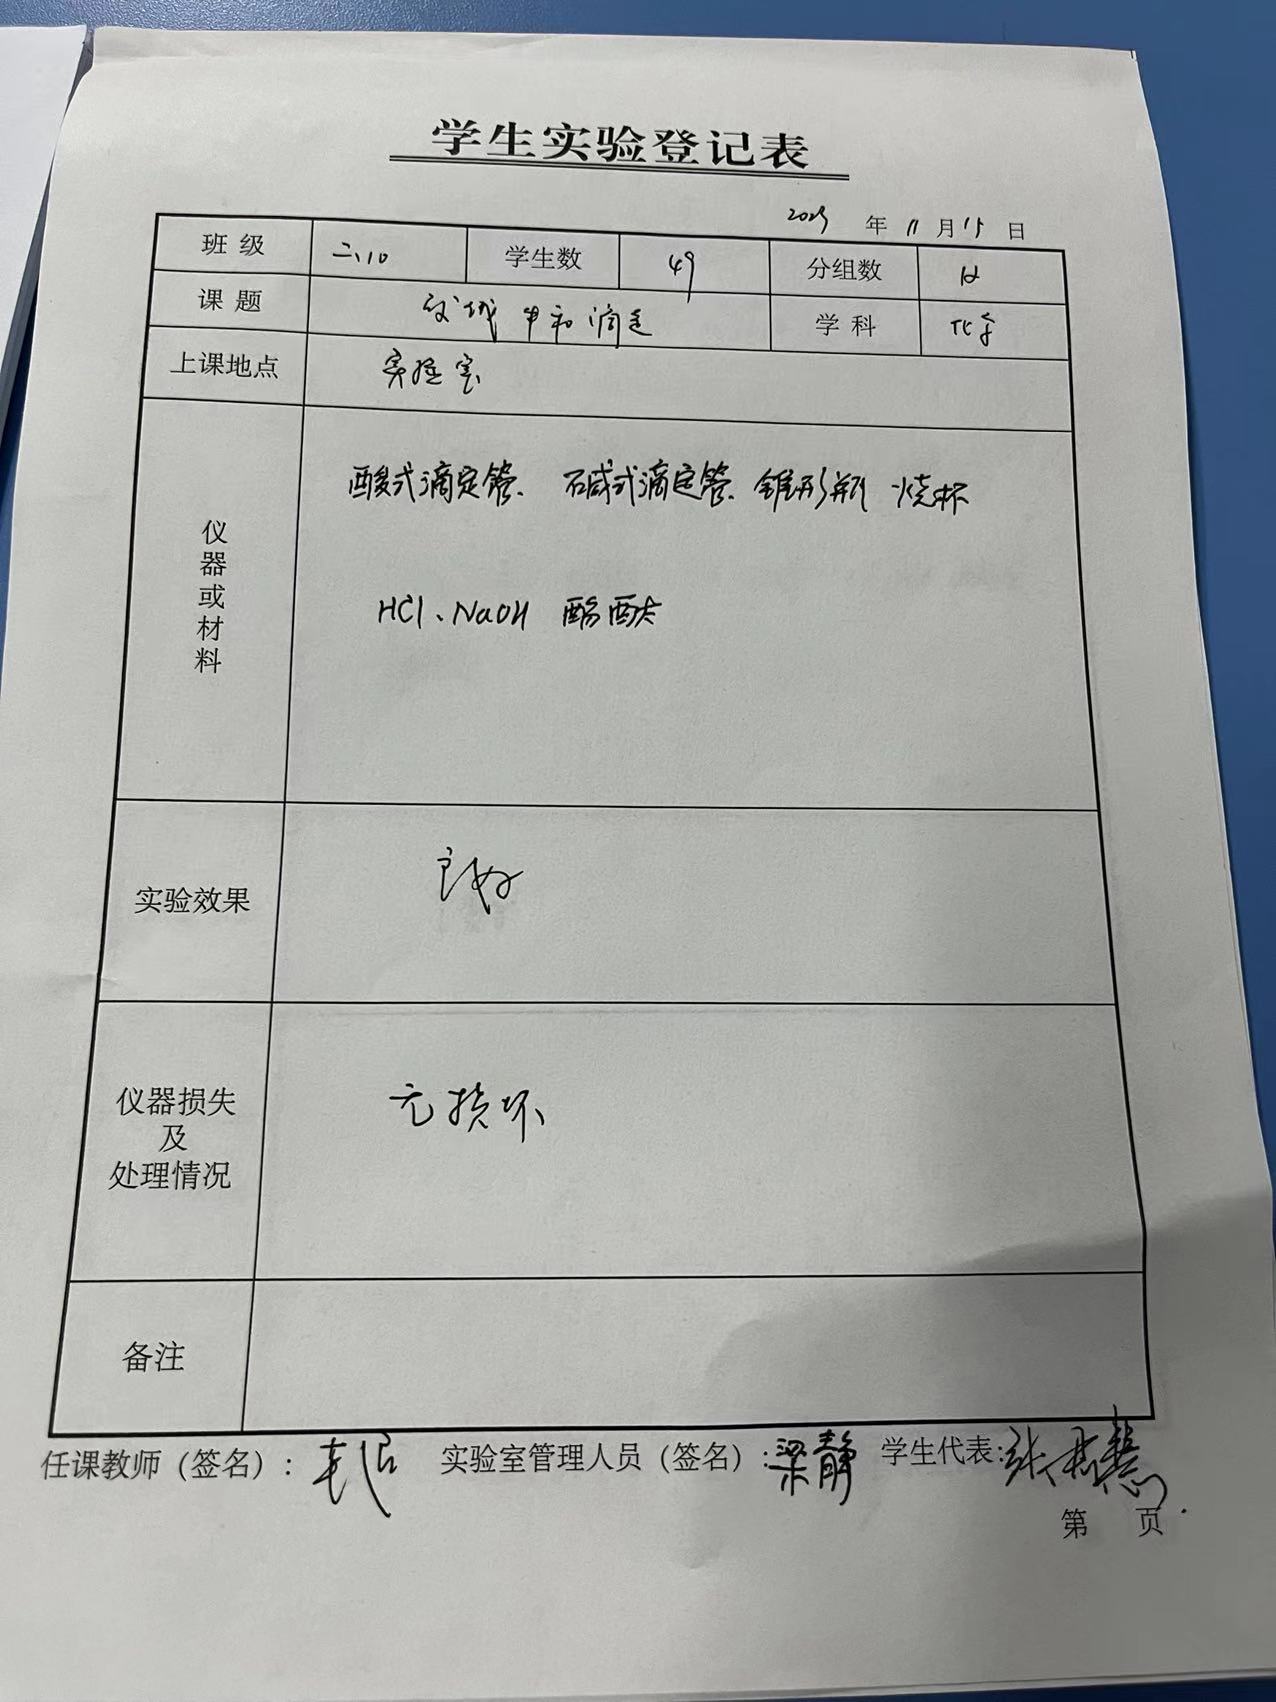 学生实验登记表
年 11 月 15 日
班级 二、10 学生数 49 分组数 12
课题 酸碱中和滴定 学科 化学
上课地点 实验室
仪器或材料
酸式滴定管、碱式滴定管、锥形瓶 烧杯
HCl、NaOH 酚酞
实验效果 良好
仪器损失
及
处理情况
无损坏
备注
任课教师（签名）： 实验室管理人员（签名）：梁静 学生代表：
第 页